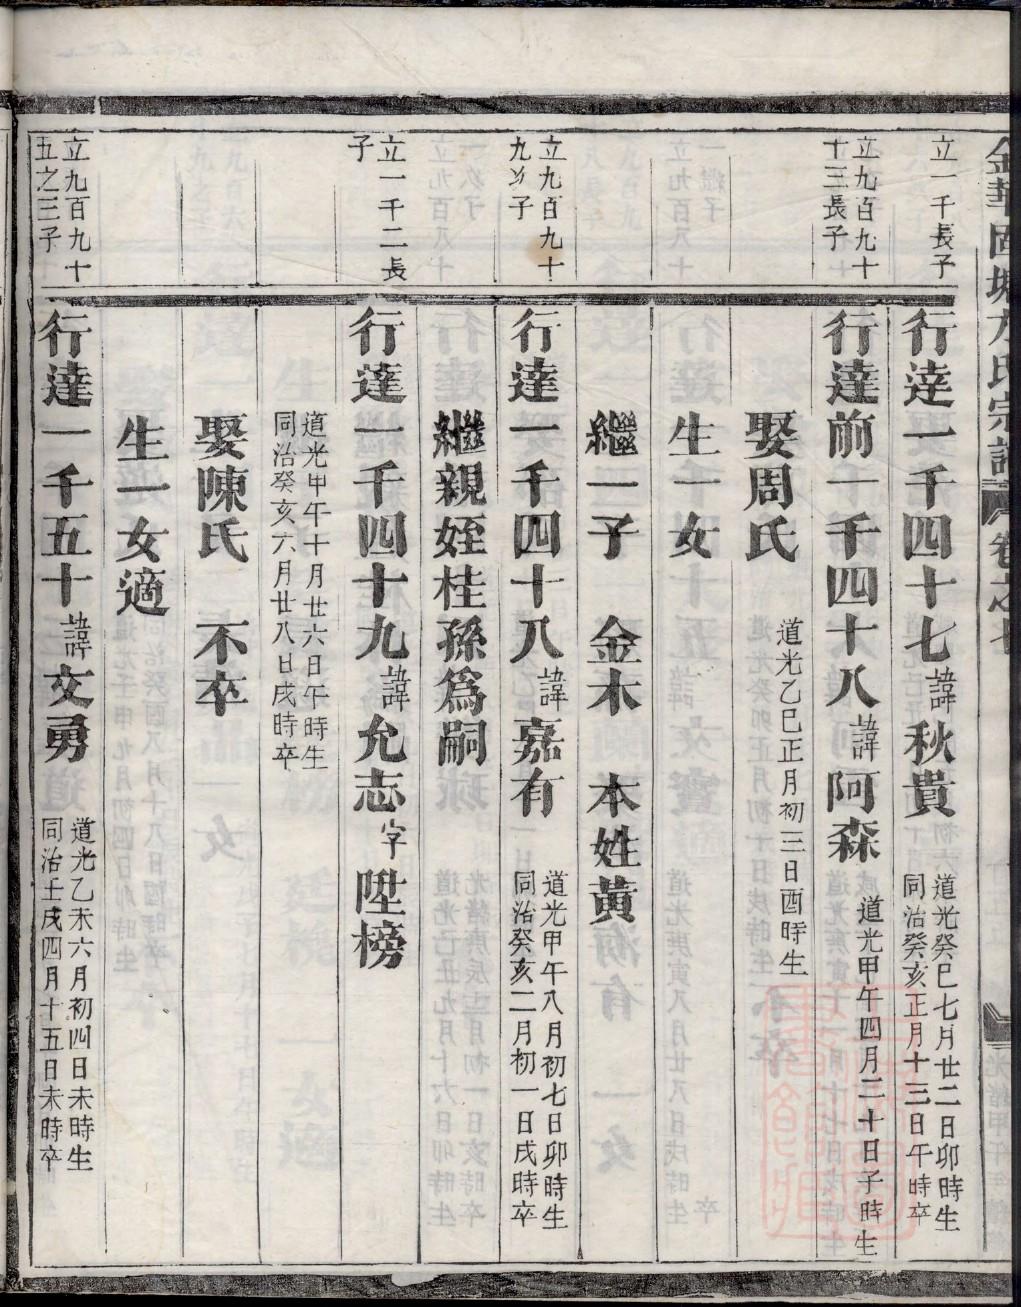 金華固塘方氏宗譜 卷之七
立一千長子
行達一千四十七諱秋貴
道光癸巳七月廿二日卯時生
同治癸亥正月十三日午時卒
立九百九十
十三長子
行達前一千四十八諱阿森
道光甲午四月二十日子時生
娶周氏
道光乙巳正月初三日酉時生
生一女
繼一子 金木 本姓黃
立九百九十
九次子
行達一千四十八諱嘉有
道光甲午八月初七日卯時生
同治癸亥二月初一日戌時卒
繼親姪桂孫爲嗣
立一千二長
子
行達一千四十九諱允志字陞榜
道光甲午十月廿六日午時生
同治癸亥六月廿八日戌時卒
娶陳氏 不卒
生一女適
立九百九十
五之三子
行達一千五十諱文勇
道光乙未六月初四日未時生
同治壬戌四月十五日未時卒